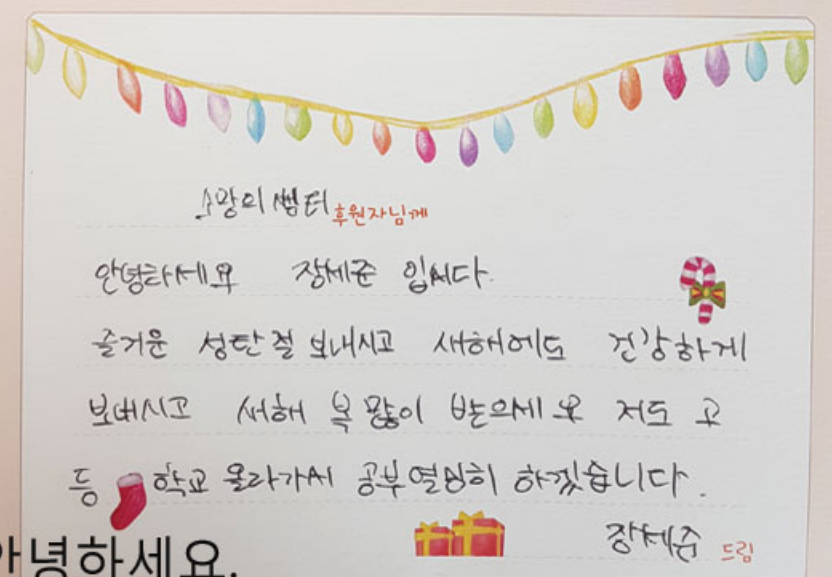 소망의 쌤터 후원자님께
안녕하세요 장세준 입니다.
즐거운 성탄절 보내시고 새해에도 건강하게
보내시고 새해 복 많이 받으세요 저도 고
등 학교 올라가서 공부열심히 하겠습니다.
장세준 드림
안녕하세요.